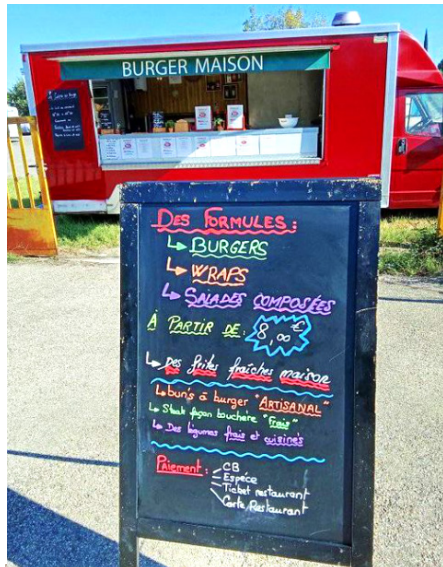 BURGER MAISON
DES FORMULES :
↳ BURGERS
↳ WRAPS
↳ SALADES COMPOSÉES
À PARTIR DE : 8,00€
↳ Des frites fraîches maison
↳ bun's à burger "ARTISANAL"
↳ Steak façon bouchère "Frais"
↳ Des légumes frais et cuisinés
Paiement : CB
Espèce
Ticket restaurant
Carte Restaurant